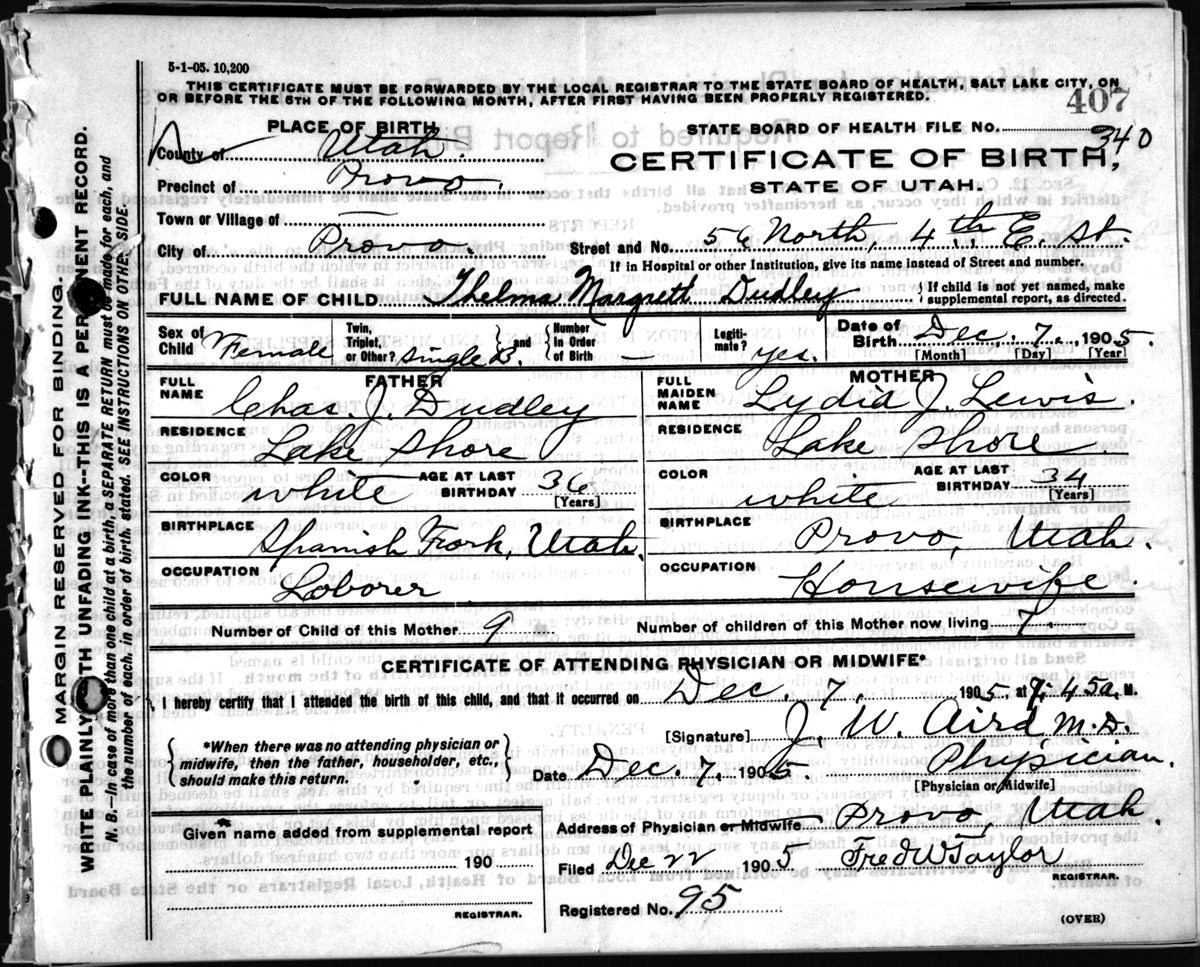 5-1-05. 10,200
THIS CERTIFICATE MUST BE FORWARDED BY THE LOCAL REGISTRAR TO THE STATE BOARD OF HEALTH, SALT LAKE CITY, ON
OR BEFORE THE 5TH OF THE FOLLOWING MONTH, AFTER FIRST HAVING BEEN PROPERLY REGISTERED.
407
PLACE OF BIRTH
STATE BOARD OF HEALTH FILE NO. 340
County of Utah.
CERTIFICATE OF BIRTH,
Precinct of Provo.
STATE OF UTAH.
Town or Village of —
City of Provo.
Street and No. 56 North, 4th E. St.
If in Hospital or other Institution, give its name instead of Street and number.
FULL NAME OF CHILD. Thelma Margrett Dudley
{ If child is not yet named, make
supplemental report, as directed.
Sex of Child Female
Twin, Triplet, or Other? Single B } and { Number In Order of Birth —
Legitimate? yes.
Date of Birth Dec. 7., 1905.
[Month] [Day] [Year]
FATHER
FULL NAME Chas. J. Dudley
MOTHER
FULL MAIDEN NAME Lydia J. Lewis.
RESIDENCE Lake Shore
RESIDENCE Lake Shore.
COLOR white AGE AT LAST BIRTHDAY 36 [Years]
COLOR white AGE AT LAST BIRTHDAY 34 [Years]
BIRTHPLACE Spanish Frork, Utah.
BIRTHPLACE Provo, Utah.
OCCUPATION Loborer
OCCUPATION Housewife.
Number of Child of this Mother 9
Number of children of this Mother now living 7.
CERTIFICATE OF ATTENDING PHYSICIAN OR MIDWIFE*
I hereby certify that I attended the birth of this child, and that it occurred on Dec. 7, 1905 at 9:45 a. M.
[Signature] J. W. Aird M.D.
{ *When there was no attending physician or
midwife, then the father, householder, etc.,
should make this return. }
Date Dec. 7, 1905. Physician.
[Physician or Midwife]
Given name added from supplemental report
190
REGISTRAR.
Address of Physician or Midwife Provo, Utah.
Filed Dec 22 1905 Fred W Taylor
REGISTRAR.
Registered No. 95
(OVER)
MARGIN RESERVED FOR BINDING.
WRITE PLAINLY WITH UNFADING INK--THIS IS A PERMANENT RECORD.
N. B.--In case of more than one child at a birth, a SEPARATE RETURN must be made for each, and
the number of each, in order of birth, stated. SEE INSTRUCTIONS ON OTHER SIDE.